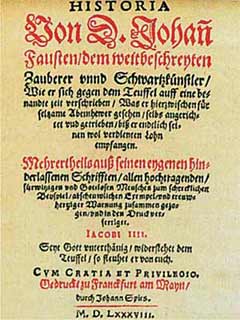 HISTORIA
Von D. Johañ
Fausten/dem weitbeschreyten
Zauberer vnnd Schwartzkünstler/
Wie er sich gegen dem Teuffel auff eine be-
nandte zeit verschrieben / Was er hierzwischen für
seltzame Abenthewr gesehen / selbs angerich-
tet vnd getrieben / biß er endtlich sei-
nen wol verdienten Lohn
empfangen.
Mehrertheils auß seinen eygenen hin-
derlassenen Schrifften / allen hochtragenden /
fürwitzigen vnd Gottlosen Menschen zum schrecklichen
Beyspiel / abscheuwlichen Exempel / vnd treuw-
hertziger Warnung zusammen gezo-
gen / vnd in den Druck ver-
fertiget.
IACOBI IIII.
Seyt Gott vnterthänig / widerstehet dem
Teuffel / so fleuhet er von euch.
CVM GRATIA ET PRIVILEGIO.
Gedruckt zu Franckfurt am Mayn /
durch Johann Spies.
M. D. LXXXVIII.